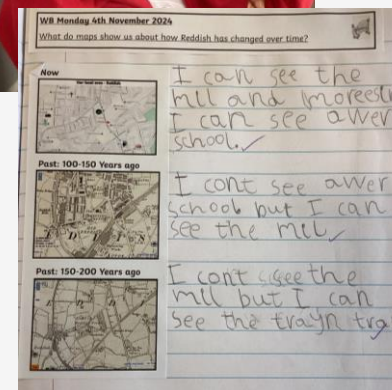 WB Monday 4th November 2024
What do maps show us about how Reddish has changed over time?
Now
I can see the
mll and moreestr
I can see awer
school.
Past: 100-150 Years ago
I cont see awer
school but I can
see the mll
Past: 150-200 Years ago
I cont see the
mill but I can
see the trayn tra